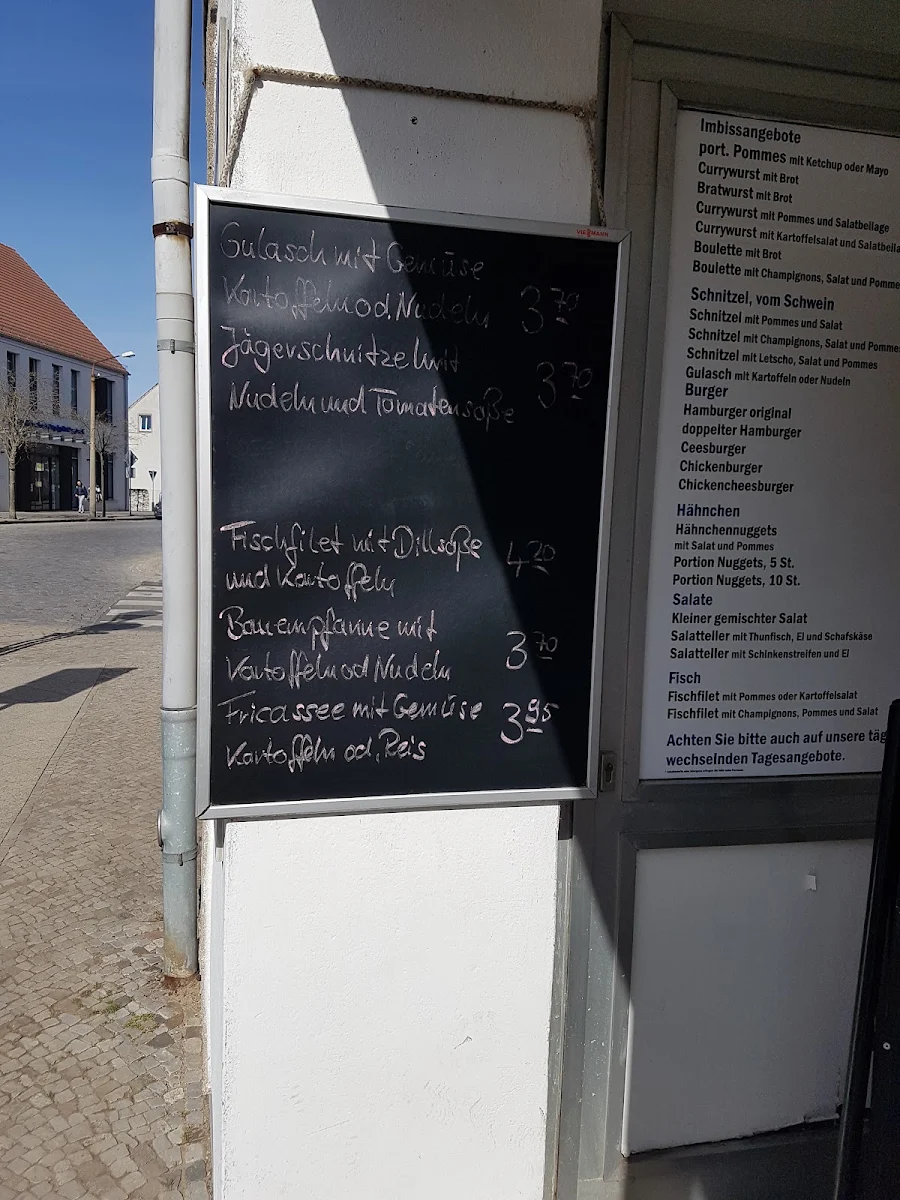 VIESSMANN
Gulasch mit Gemüse
Kartoffeln od. Nudeln 3 70
Jägerschnitzel mit
Nudeln und Tomatensoße 3 70
Fischfilet mit Dillsoße 4 20
und Kartoffeln
Bauernpfanne mit
Kartoffeln od Nudeln 3 70
Fricassee mit Gemüse 3 95
Kartoffeln od. Reis
Imbissangebote
port. Pommes mit Ketchup oder Mayo
Currywurst mit Brot
Bratwurst mit Brot
Currywurst mit Pommes und Salatbeilage
Currywurst mit Kartoffelsalat und Salatbeila
Boulette mit Brot
Boulette mit Champignons, Salat und Pomme
Schnitzel, vom Schwein
Schnitzel mit Pommes und Salat
Schnitzel mit Champignons, Salat und Pommes
Schnitzel mit Letscho, Salat und Pommes
Gulasch mit Kartoffeln oder Nudeln
Burger
Hamburger original
doppelter Hamburger
Ceesburger
Chickenburger
Chickencheesburger
Hähnchen
Hähnchennuggets
mit Salat und Pommes
Portion Nuggets, 5 St.
Portion Nuggets, 10 St.
Salate
Kleiner gemischter Salat
Salatteller mit Thunfisch, EI und Schafskäse
Salatteller mit Schinkenstreifen und EI
Fisch
Fischfilet mit Pommes oder Kartoffelsalat
Fischfilet mit Champignons, Pommes und Salat
Achten Sie bitte auch auf unsere täg
wechselnden Tagesangebote.